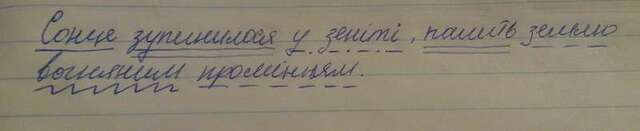 Сонце зупинилося у зеніті, палить землю
вогняним промінцям.